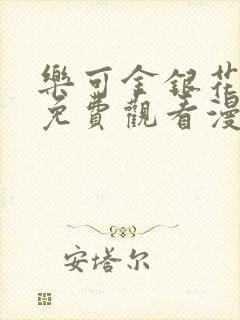 樂可金銀花
免費觀看漫
安塔尔